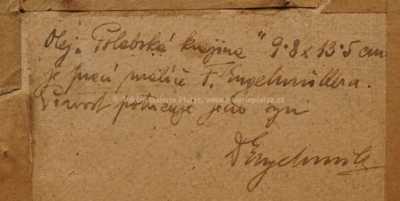 Olej „Polabská krajina“ 9·8 x 13·5 cm
je prací malíře F. Engelmüllera.
Pravost potvrzuje jeho syn